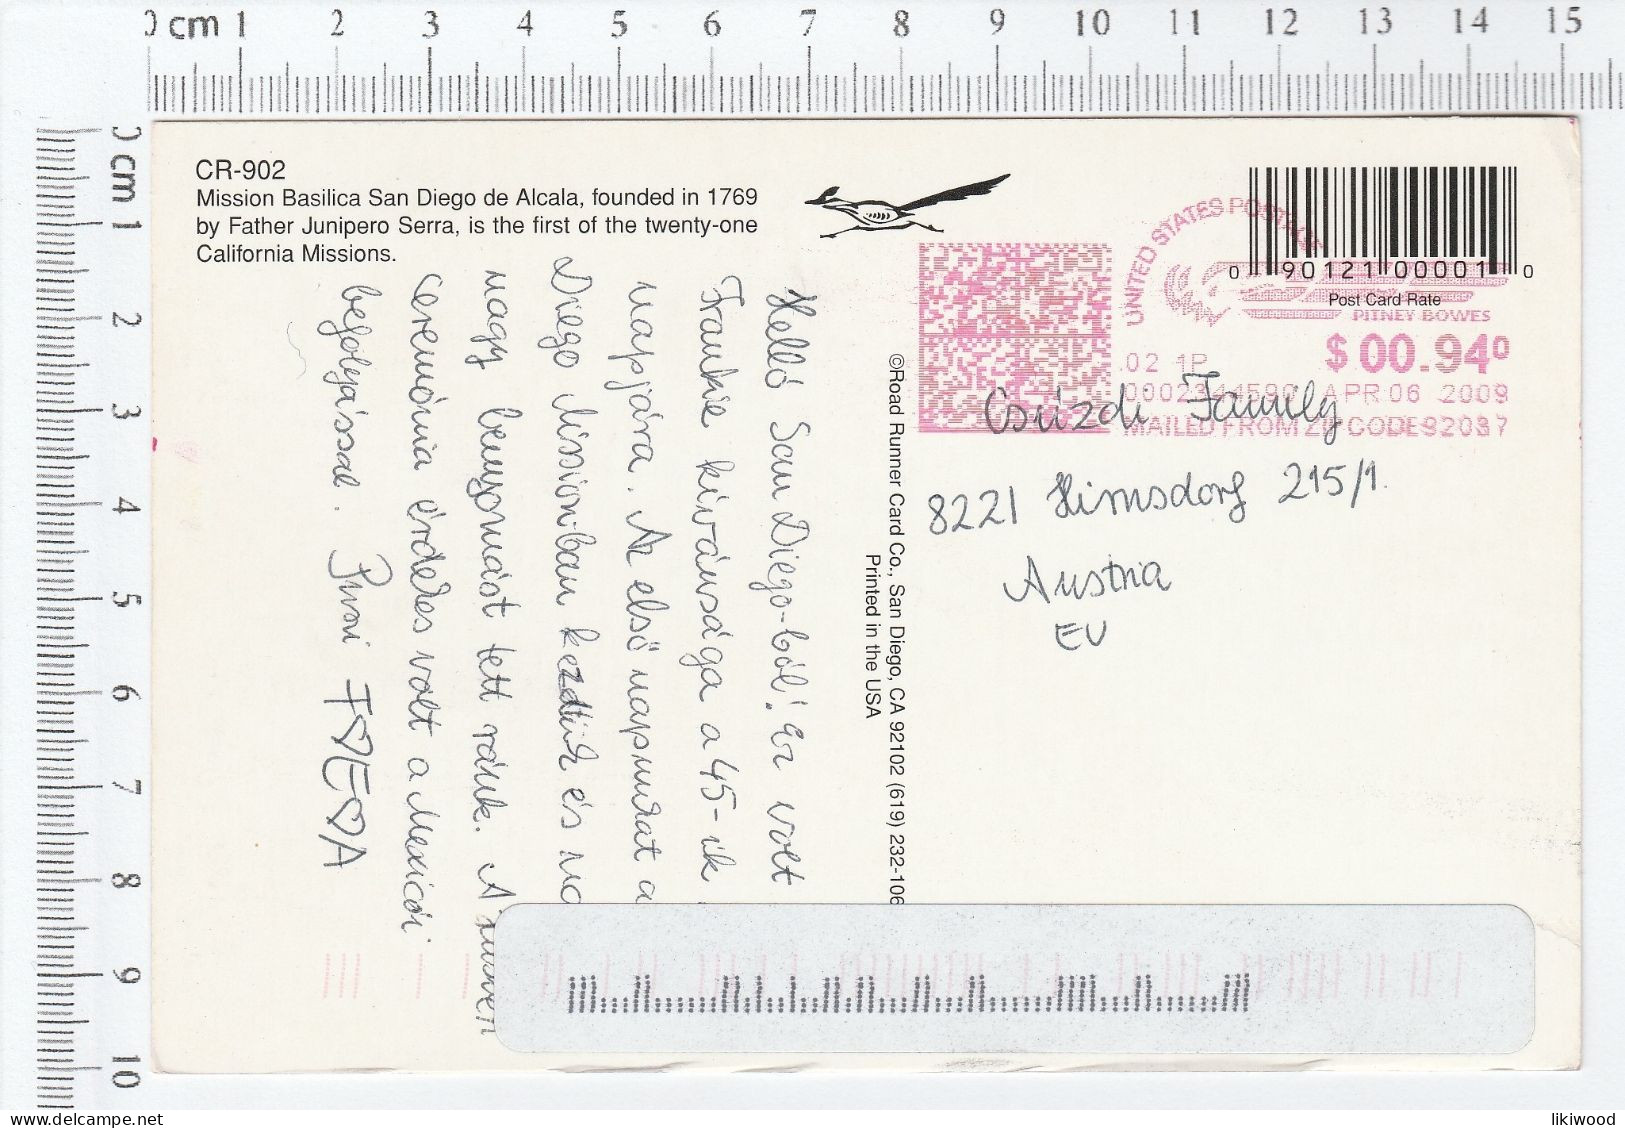 0 cm 1 2 3 4 5 6 7 8 9 10 11 12 13 14 15
0 cm 1 2 3 4 5 6 7 8 9 10
CR-902
Mission Basilica San Diego de Alcala, founded in 1769
by Father Junipero Serra, is the first of the twenty-one
California Missions.
Helló San Diego-ból! Ez volt
Frankie kívánsága a 45-ik
napjára. Az első napunkat a
Diego Mission-ban kezdtük és na
nagy benyomást tett ránk. A
ceremónia érdekes volt a Mexicói
befolyással.
©Road Runner Card Co., San Diego, CA 92102 (619) 232-106
Printed in the USA
UNITED STATES POSTAGE
0 90121 00001 0
Post Card Rate
PITNEY BOWES
02 1P
$ 00.94⁰
APR 06 2009
MAILED FROM ZIP CODE 92037
Family
8221 Hirnsdorf 215/1.
Austria
EU
likiwood